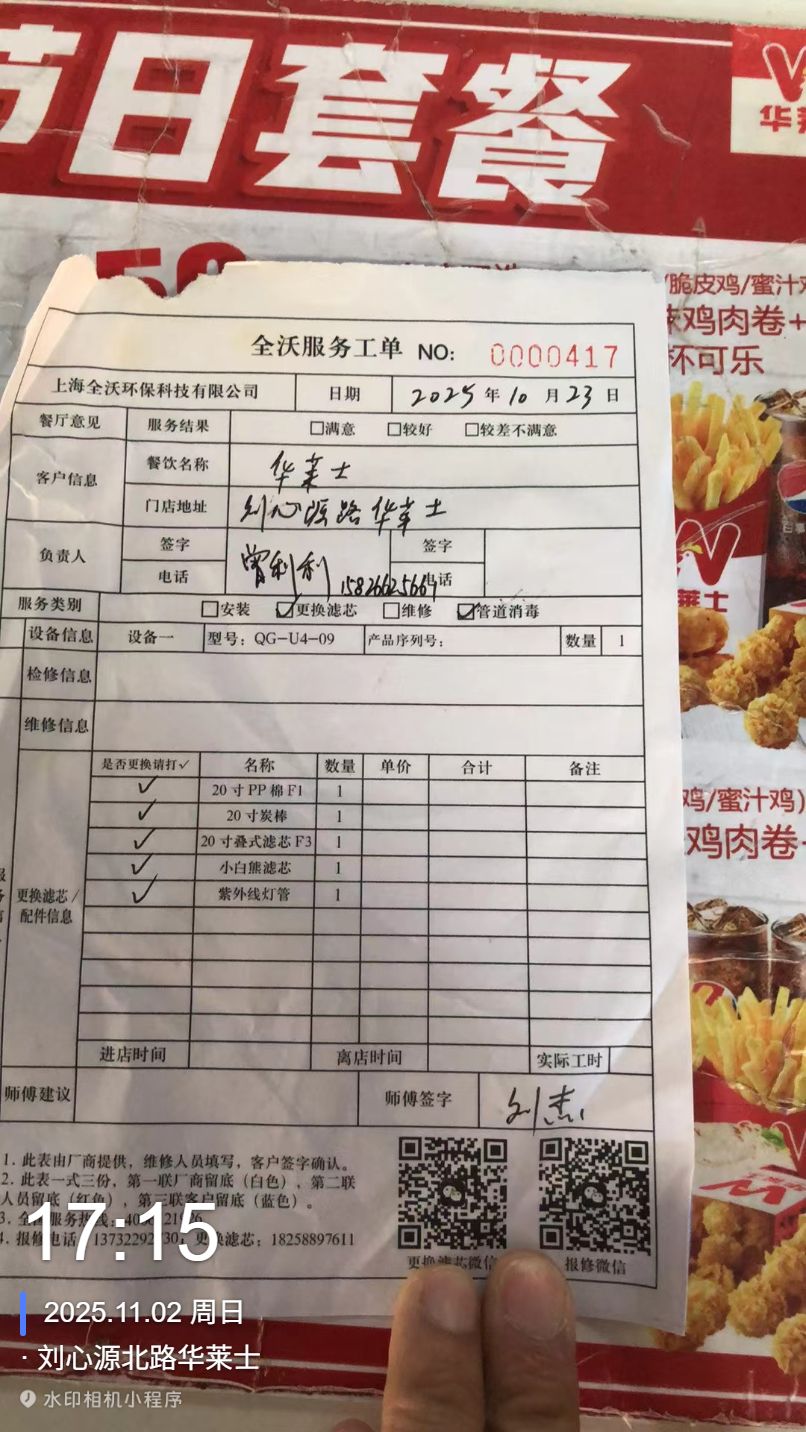 节日套餐
华莱
50
/脆皮鸡/蜜汁鸡
辣鸡肉卷+
杯可乐
全沃服务工单 NO: 0000417
上海全沃环保科技有限公司 日期 2025年10月23日
餐厅意见 服务结果 □满意 □较好 □较差不满意
客户信息 餐饮名称 华莱士
门店地址 刘心源路华莱士
负责人 签字 曾利利 签字
电话 15826625661 电话
服务类别 □安装 ☑更换滤芯 □维修 ☑管道消毒
设备信息 设备一 型号：QG-U4-09 产品序列号： 数量 1
检修信息
维修信息
莱士
更换滤芯/配件信息
是否更换请打✓ 名称 数量 单价 合计 备注
✓ 20寸PP棉F1 1
✓ 20寸炭棒 1
✓ 20寸叠式滤芯F3 1
✓ 小白熊滤芯 1
✓ 紫外线灯管 1
鸡/蜜汁鸡)
鸡肉卷+
进店时间 离店时间 实际工时
师傅建议 师傅签字 刘杰
1. 此表由厂商提供，维修人员填写，客户签字确认。
2. 此表一式三份，第一联厂商留底（白色），第二联
人员留底（红色），第三联客户留底（蓝色）。
3. 全沃服务热线：
4. 报修电话 更换滤芯：18258897611
更换滤芯微信 报修微信
17:15
2025.11.02 周日
· 刘心源北路华莱士
水印相机小程序